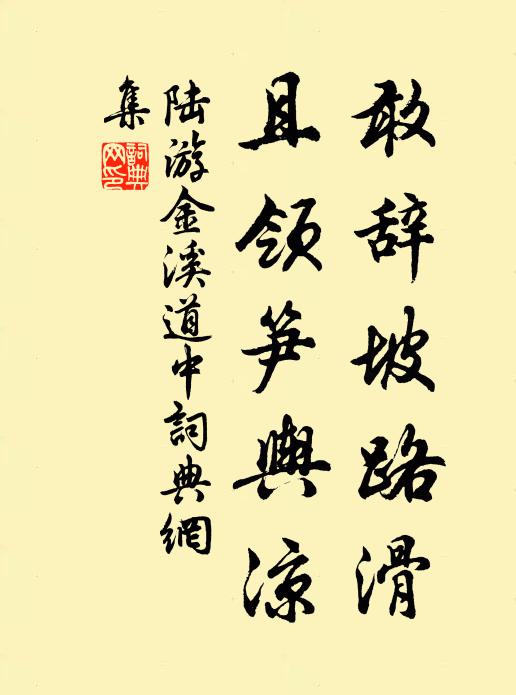 敢辞坡路滑
且领笋舆凉
陆游金溪道中詞典網
集
詞典網印